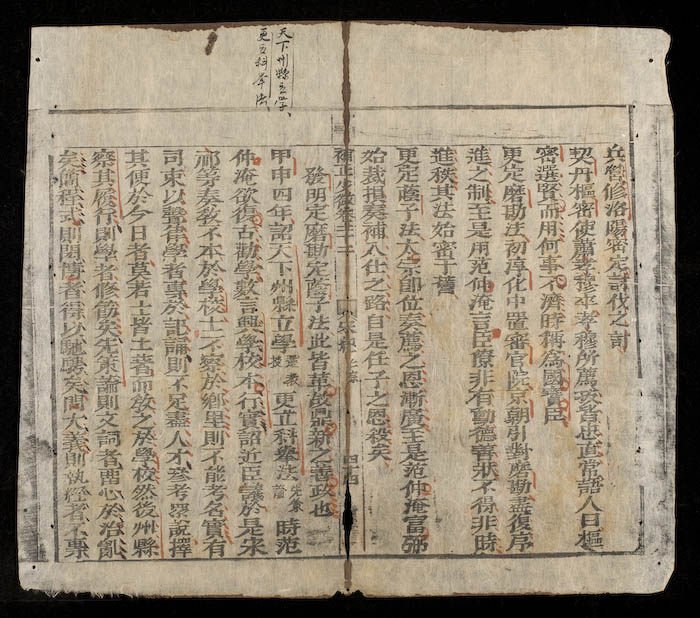 天下州縣立學、
更立科舉法、
兵營修洛陽密定討伐之計
契丹樞密使蕭孝穆卒孝穆所薦拔皆忠直常語人曰樞
密選賢而用何事不濟時稱為國寶臣
更定磨勘法初淳化中置審官院京朝引對磨勘盡復序
進之制至是用范仲淹言臣僚非有勳德善狀不得非時
進秩其法始密于舊
更定蔭子法太宗即位奏薦之恩漸廣至是范仲淹富弼
始裁損奏補入仕之路自是任子之恩殺矣
補正少微卷三十二 四十四
發明定磨勘定蔭子法此皆革故鼎新之善政也
甲申四年詔天下州縣立學 更立科舉法 時范
仲淹欲復古勸學數言興學校本行實詔近臣議於是宋
祁等奏教不本於學校士不察於鄉里則不能考名實有
司束以聲律學者專於記誦則不足盡人才參考眾說擇
其便於今日者莫若士皆土著而教之於學校然後州縣
察其履行則學者修飭矣先策論則文詞者留心於治亂
矣簡程式則閎博者得以馳騁矣問大義則執經者不專